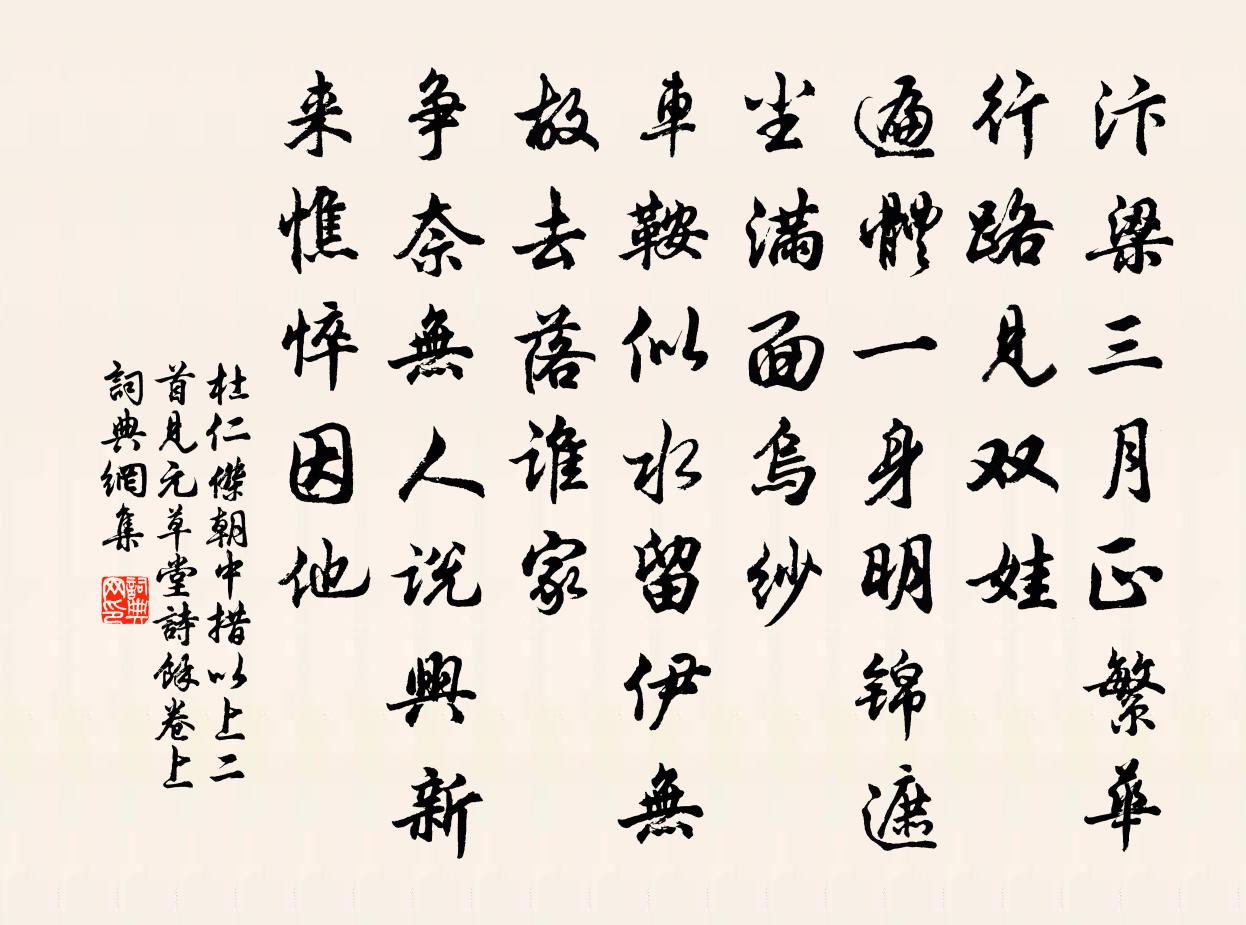 汴梁三月正繁華
行路見双娃
遍體一身明錦遮
坐滿面烏紗
車鞍似水留伊無
故去落誰家
争奈無人説與新
来憔悴因他
杜仁傑朝中措以上二
首見元草堂詩餘卷上
詞典網集
詞典网印